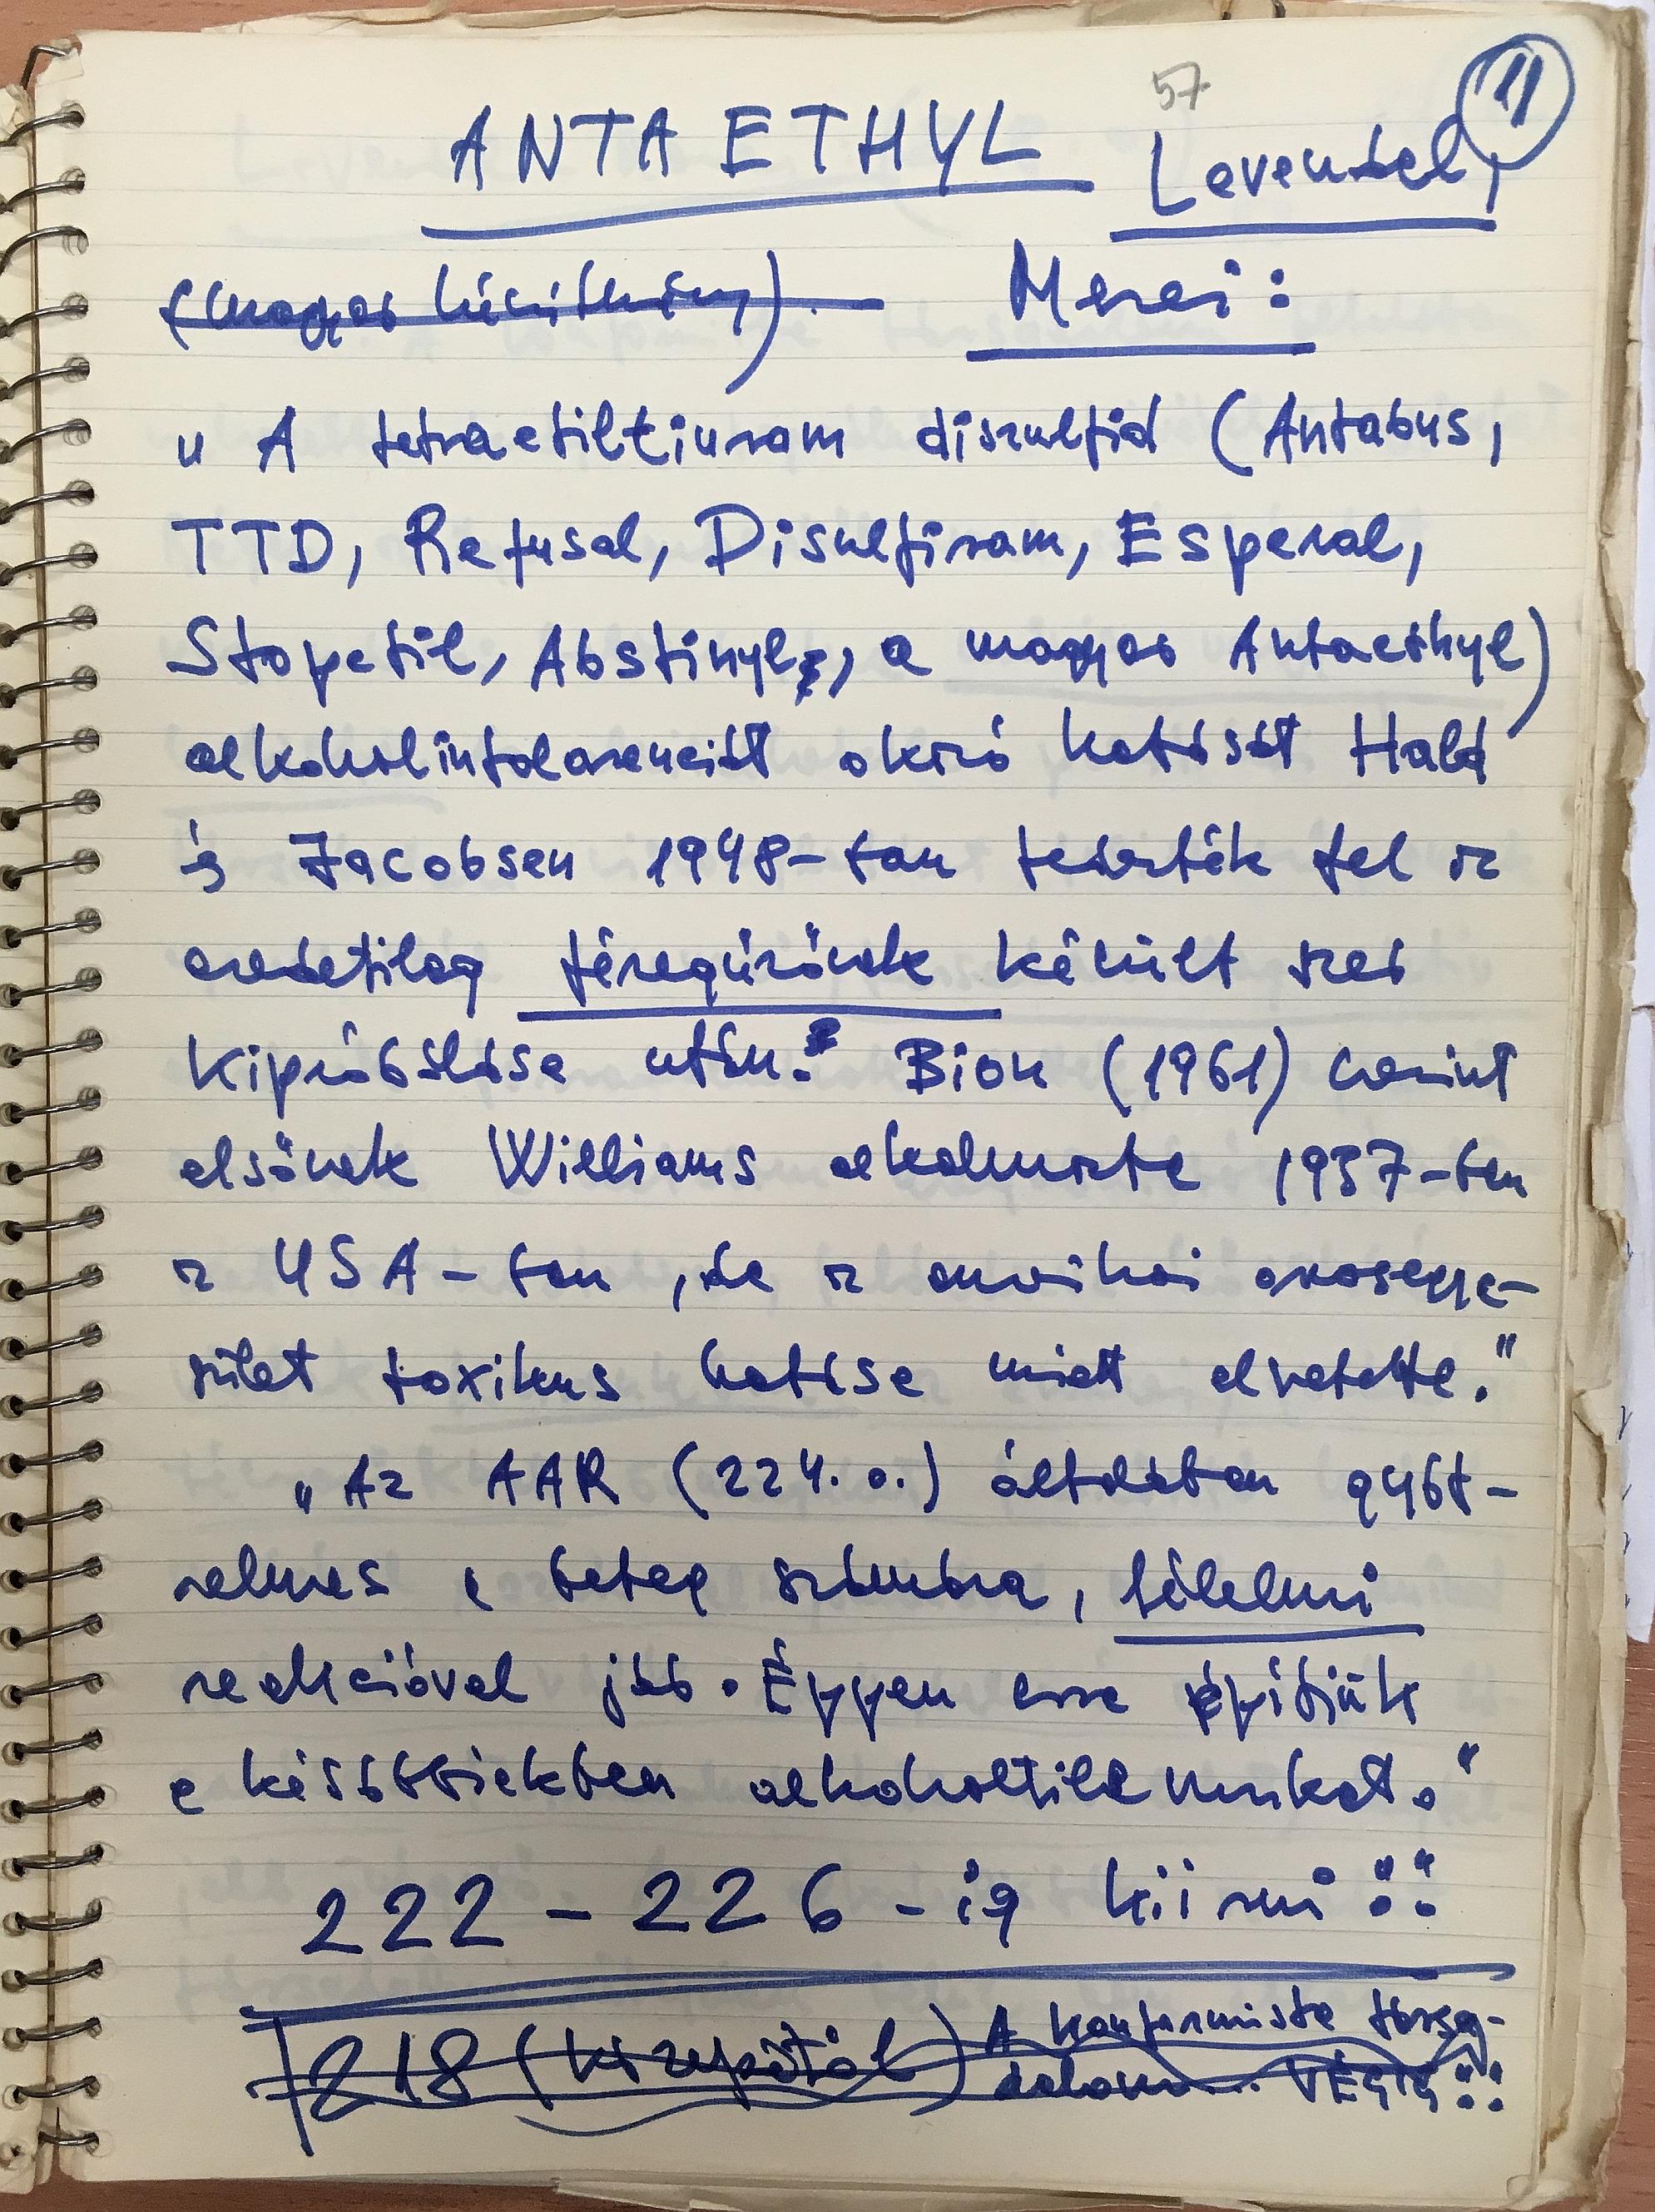 57
11
ANTAETHYL Levendel,
(magyar készítmény). Merei:
„A tetraetiltiuram diszulfid (Antabus,
TTD, Refusal, Disulfiram, Esperal,
Stopetil, Abstinyl, a magyar Antaethyl)
alkoholintoleranciát okozó hatását Hald
és Jacobsen 1948-ban fedezték fel az
eredetileg féregűzőnek készült szer
kipróbálása után. Bion (1961) szerint
elsőnek Williams alkalmazta 1937-ben
az USA-ban, de az amerikai orvosegye-
sület toxikus hatása miatt elvetette."
„Az AAR (224. o.) általában gyöt-
relmes a beteg számára, félelmi
reakcióval jár. Éppen erre építjük
a későbbiekben alkoholtilalmunkat."
222 - 226 - ig kiírni!!
218 (középtől) A konformista társa-
dalom... VÉGIG!!